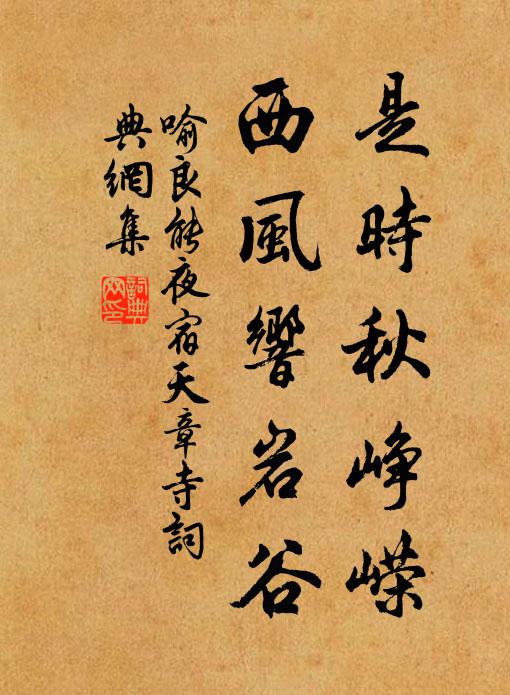 是時秋崢嶸
西風響岩谷
喻良能夜宿天章寺詞
典網集
詞典
网印